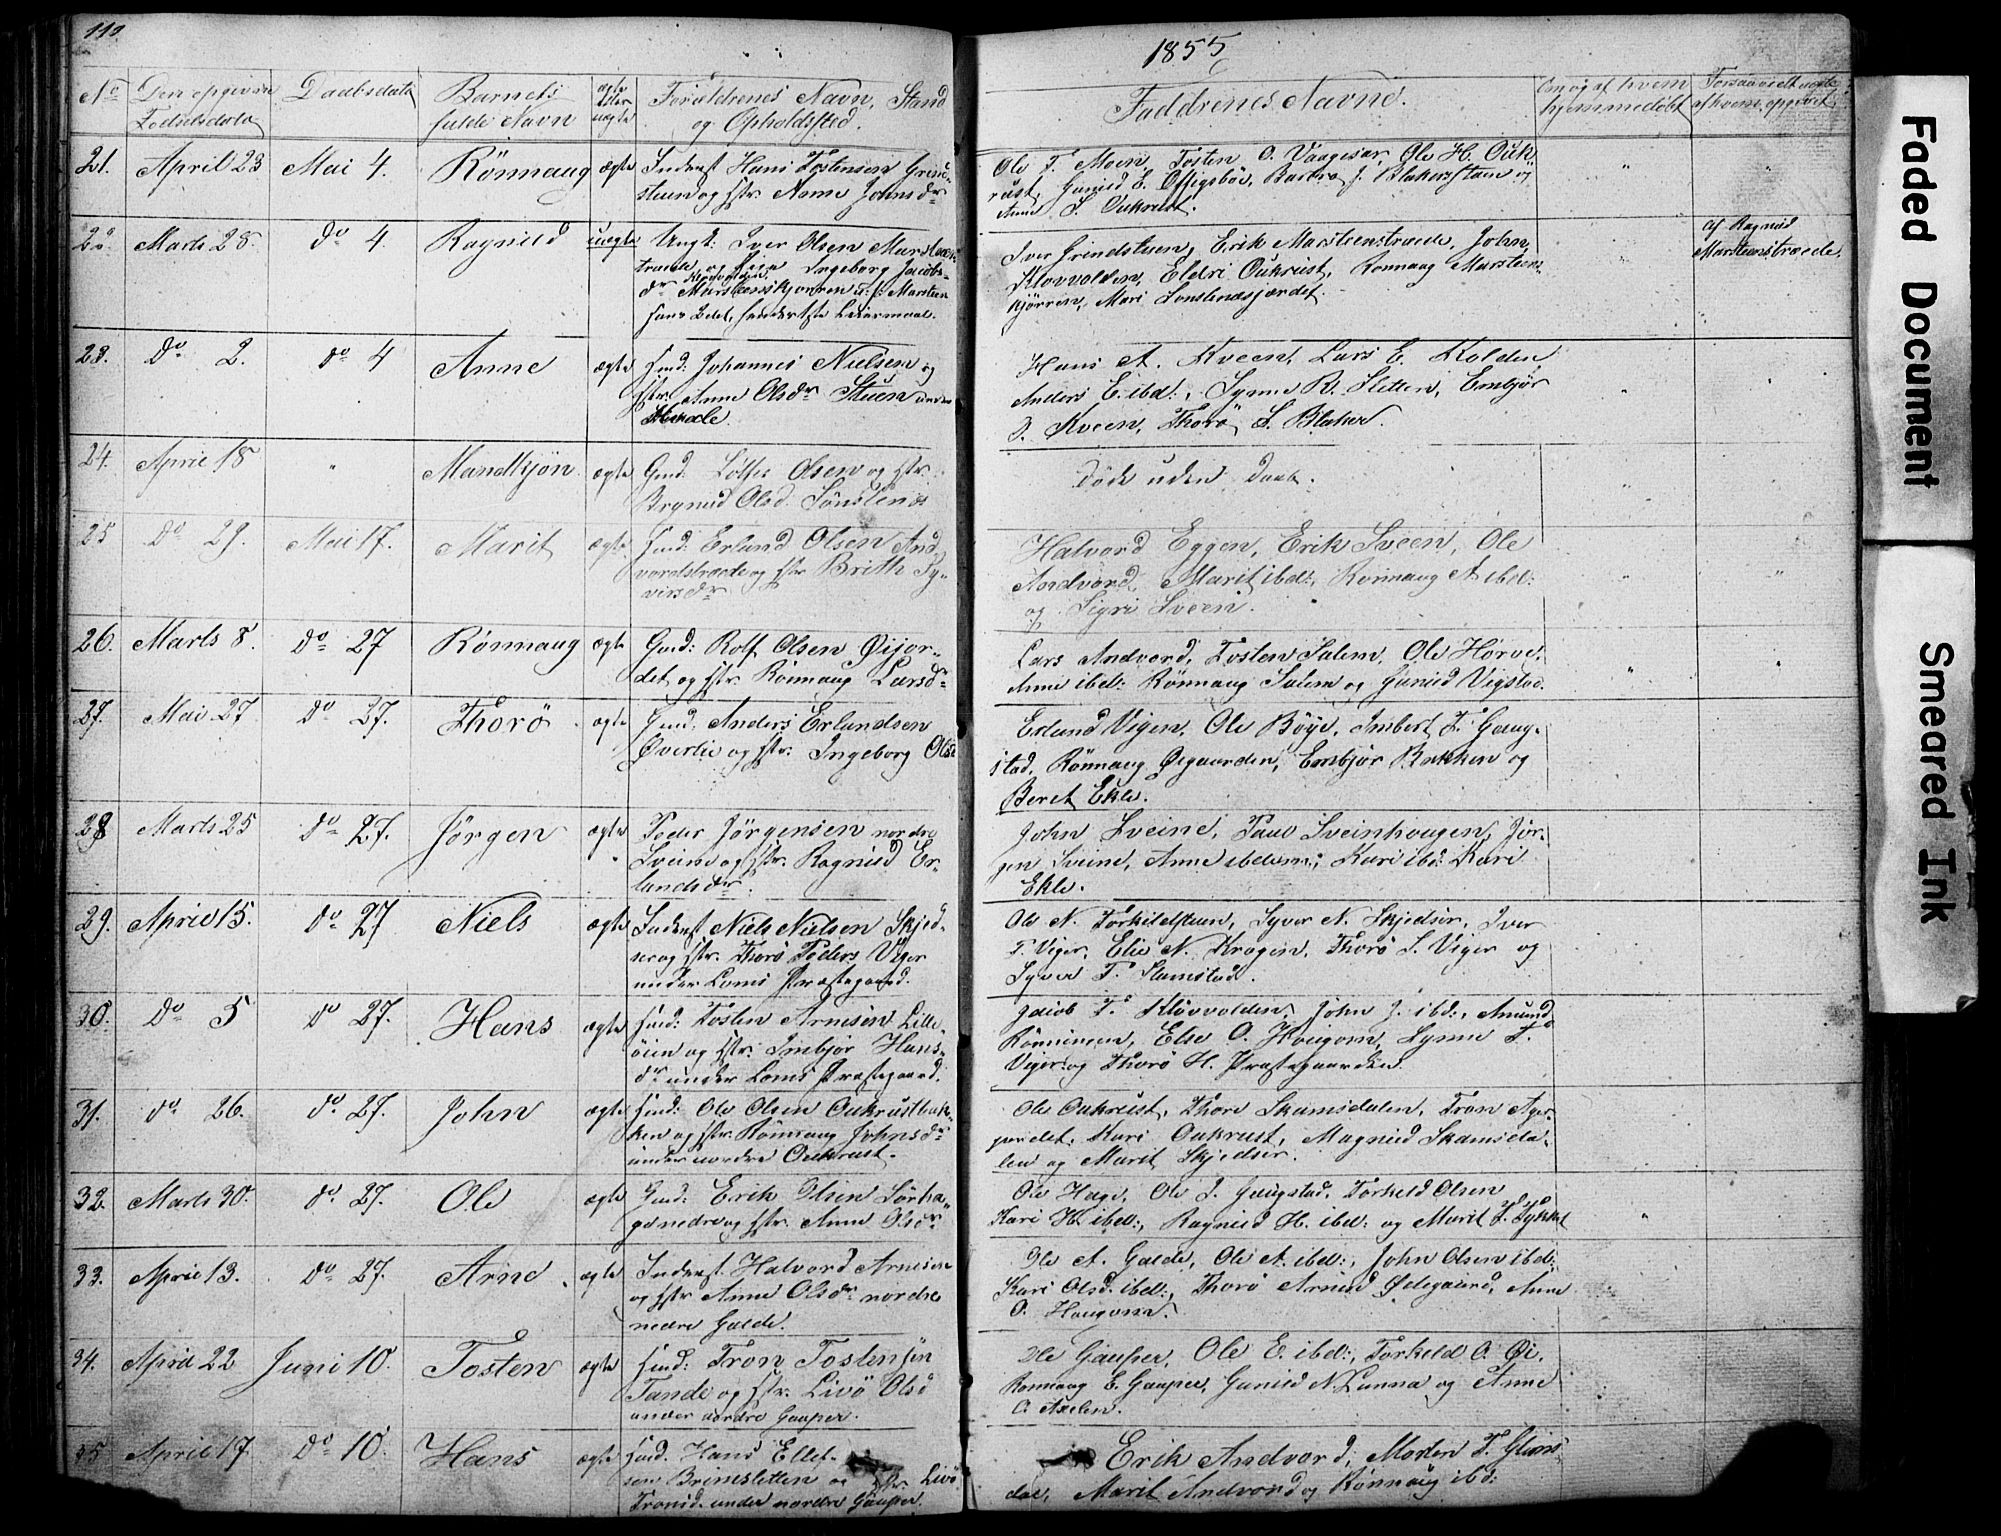 110.
1855
No Den opgivne Daabsdata Barnets ægte Foræld­renes Navn, Stand
Fødselsdata fulde Navn eller uægte og Opholdssted.
Faddrenes Navne. Om og af hvem hjemmedøbt
21. April 23 Mai 4. Rönnaug ægte Inderst Hans Tostensen Grind-
stuen og Hstr. Anne Johnsdr
Ole T. Moen, Tosten O. Vaagesar, Ole H. Ouk-
rust, Gunild E. Offigsbøe, Barbro J. Blakerstuen og
Anne S. Oukrust.
22. Marts 28. do 4. Ragnild uægte Ungk: Iver Olsen Marsteen-
træde og Pige Ingeborg Jacobs-
dr Marsteenskjørren u. f: Marsteen
hans 2det, hendes 1ste Leiermaal.
Iver Grindstuen, Erik Marsteenstræede, John
Klovvolden, Eldri Oukrust, Rönnaug Marsteen-
kjørren, Mari Sønstenesjærdet.
Af Ragnild
Marsteenstræede.
23. Do 2. do 4 Anne ægte Huusm: Johannes Nielsen og
Hstr. Anne Olsdr Stuen under
Hans A. Kveen, Lars E. Kolden,
Anders E. ibd:, Synne R. Sletten, Embjør
J. Kveen, Thorö S. Blaker.
24. April 18 " Mandkjøn ægte Gmd: Olsen og Hstr.
Brynild Olsd. Sønstenes
Döde uden Daab.
25 Do 29. Mai 17. Marit ægte Huusm: Erland Olsen And-
vordstræde og Hstr Brith Sy-
versdr
Halvord Eggen, Erik Sveen, Ole
Andvord, Marit ibd:, Rönnaug A. ibd:
og Sigri Sveen.
26. Marts 8. do 27 Rönnaug ægte Gmd: Rolf Olsen Øijor-
det og Hstr. Rönnaug Larsdr
Lars Andvord, Tosten Sulem, Ole Hørve,
Anne ibd: Rönnaug Sulem og Gunild Vigstad.
27. Mai 27 do 27. Thorö ægte Gmd: Anders Erlandsen
Øverlie og Hstr. Ingeborg Olsd
Erland Vigen, Ole Böye, Imbert T. Gaug-
stad, Rönnaug Øigaarden, Embjør Bakken og
Beret Ekle.
28 Marts 25 do 27. Jørgen ægte Peder Jørgensen nordre
Sveine og Hstr. Ragnild Er-
landsdr.
John Sveine, Paul Sveinhougen, Jør-
gen Sveine, Anne ibdem:, Kari ibd: Kari
Ekle.
29. April 15. do 27 Niels ægte Inderst Niels Nielsen Skjed-
ser og Hstr. Thorö Peders Viger
under Loms Præstegaard.
Ole N. Torkildstuen, Syver N. Skjedser, Iver
T. Viger, Elie N. Krogen, Thorö S. Viger og
Syver T. Slamstad.
30. Do 5 do 27. Hans ægte Huusm: Tosten Arnesen Lille-
öien og Hstr. Imbjør Hans-
dr under Loms Præstegaard.
Jacob T. Klövvolden, John J. ibd:, Amund
Rönningen, Else O. Hougom, Synne T.
Viger og Thorö H. Præstegaarden.
31. do 26. do 27. John ægte Huusm: Ole Olsen Oukrustbak-
ken og Hstr Rönnaug Johnsdr
under nordre Oukrust.
Ole Oukrust, Thore Skamsdalen, Tron Ager-
jordet, Kari Oukrust, Magnild Skamsda-
len og Marit Skjedser.
32. Marts 30. do 27. Ole ægte Gmd: Erik Olsen Sørha-
ge nedre og Hstr. Anne Olsdr
Ole Hage, Ole J. Gaugstad, Torkeld Olsen
Kari H. ibd:, Ragnild H. ibd: og Marit
33. April 13. do 27. Arne ægte Inderst Halvord Arnesen
og Hstr Anne Olsdr nordre
nedre Galde.
Ole A. Galde, Ole A. ibd:, John Olsen ibd:
Kari Olsd. ibd:, Thorö Arnesd Ødegaard, Anne
O. Hougom.
34. April 22 Juni 10. Tosten ægte Huusm: Tron Tostensen
Tande og Hstr. Livö Olsd
under nordre Gaupar.
Ole Gauper, Ole E. ibd:, Torkeld O. Øi,
Rönnaug E. Gauper, Gunild N. Sunna og Anne
O. Axelen.
35 April 17. Do 10. Hans ægte Huusm. Hans Ellef-
sen Brimsletten og Hstr. Livö
Tronsd. under nordre Gauper.
Erik Andvord, Morten T. Glims-
dal, Marit Andvord og Rönnaug ibd:
Faded Document
Smeared Ink